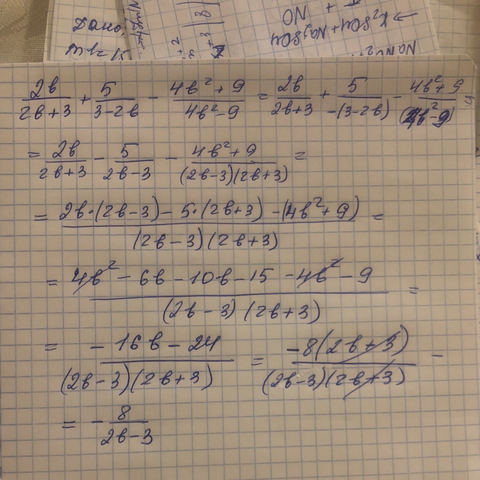 Дано,
m₁ = 15
8
→ K₂SO₄ + Na₂SO₄
+ NO
NaNO₂
2b/(2b+3) + 5/(3-2b) - (4b²+9)/(4b²-9) = 2b/(2b+3) + 5/(-(3-2b)) - (4b²+9)/(4b²-9)
= 2b/(2b+3) - 5/(2b-3) - (4b²+9)/((2b-3)(2b+3)) =
= (2b·(2b-3) - 5·(2b+3) - (4b²+9))/((2b-3)(2b+3)) =
= (4b² - 6b - 10b - 15 - 4b² - 9)/((2b-3)(2b+3)) =
= (-16b - 24)/((2b-3)(2b+3)) = (-8(2b+3))/((2b-3)(2b+3)) -
= - 8/(2b-3)